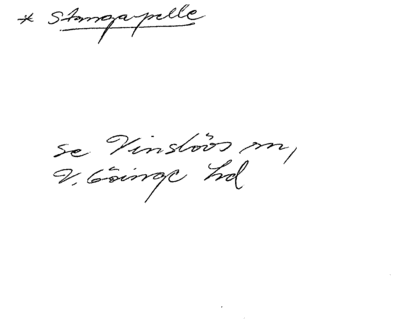 * Stangapelle
se Vinslövs sn,
V. Göinge hd